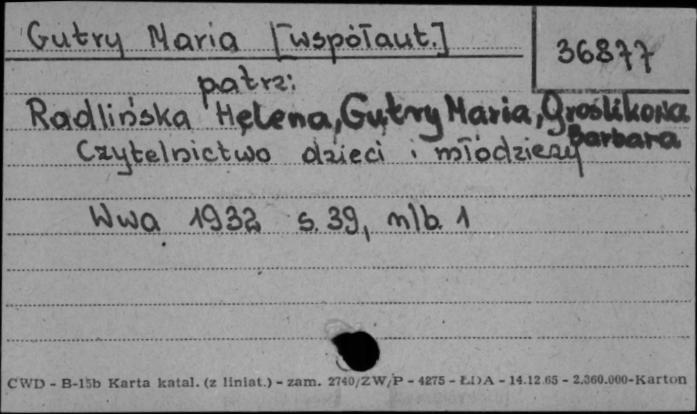 Gutry Maria [współaut.]
36877
patrz:
Radlińska Helena, Gutry Maria, Groślikowa
Barbara
Czytelnictwo dzieci i młodzieży
Wwa 1932 s. 39, nlb. 1
CWD - B-15b Karta katal. (z liniat.) - zam. 2740/ZW/P - 4275 - ŁDA - 14.12.65 - 2.360.000-Karton